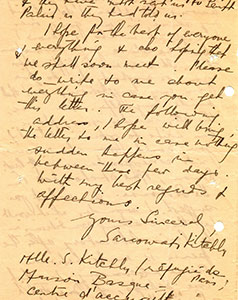 & they
Paled in the
I hope for the best of everyone
& everything & also hoping that
we shall soon meet. Please
do write to me about
everything in case you get
this letter. The following
address, I hope will bring
the letter to me in case nothing
sudden happens in
between these few days.
With my best regards &
affections.
Yours Sincerely
Sarcowati Kitabli
Mlle. S. Kitabli (réfugiée de
Maison Basque
centre d'accueil